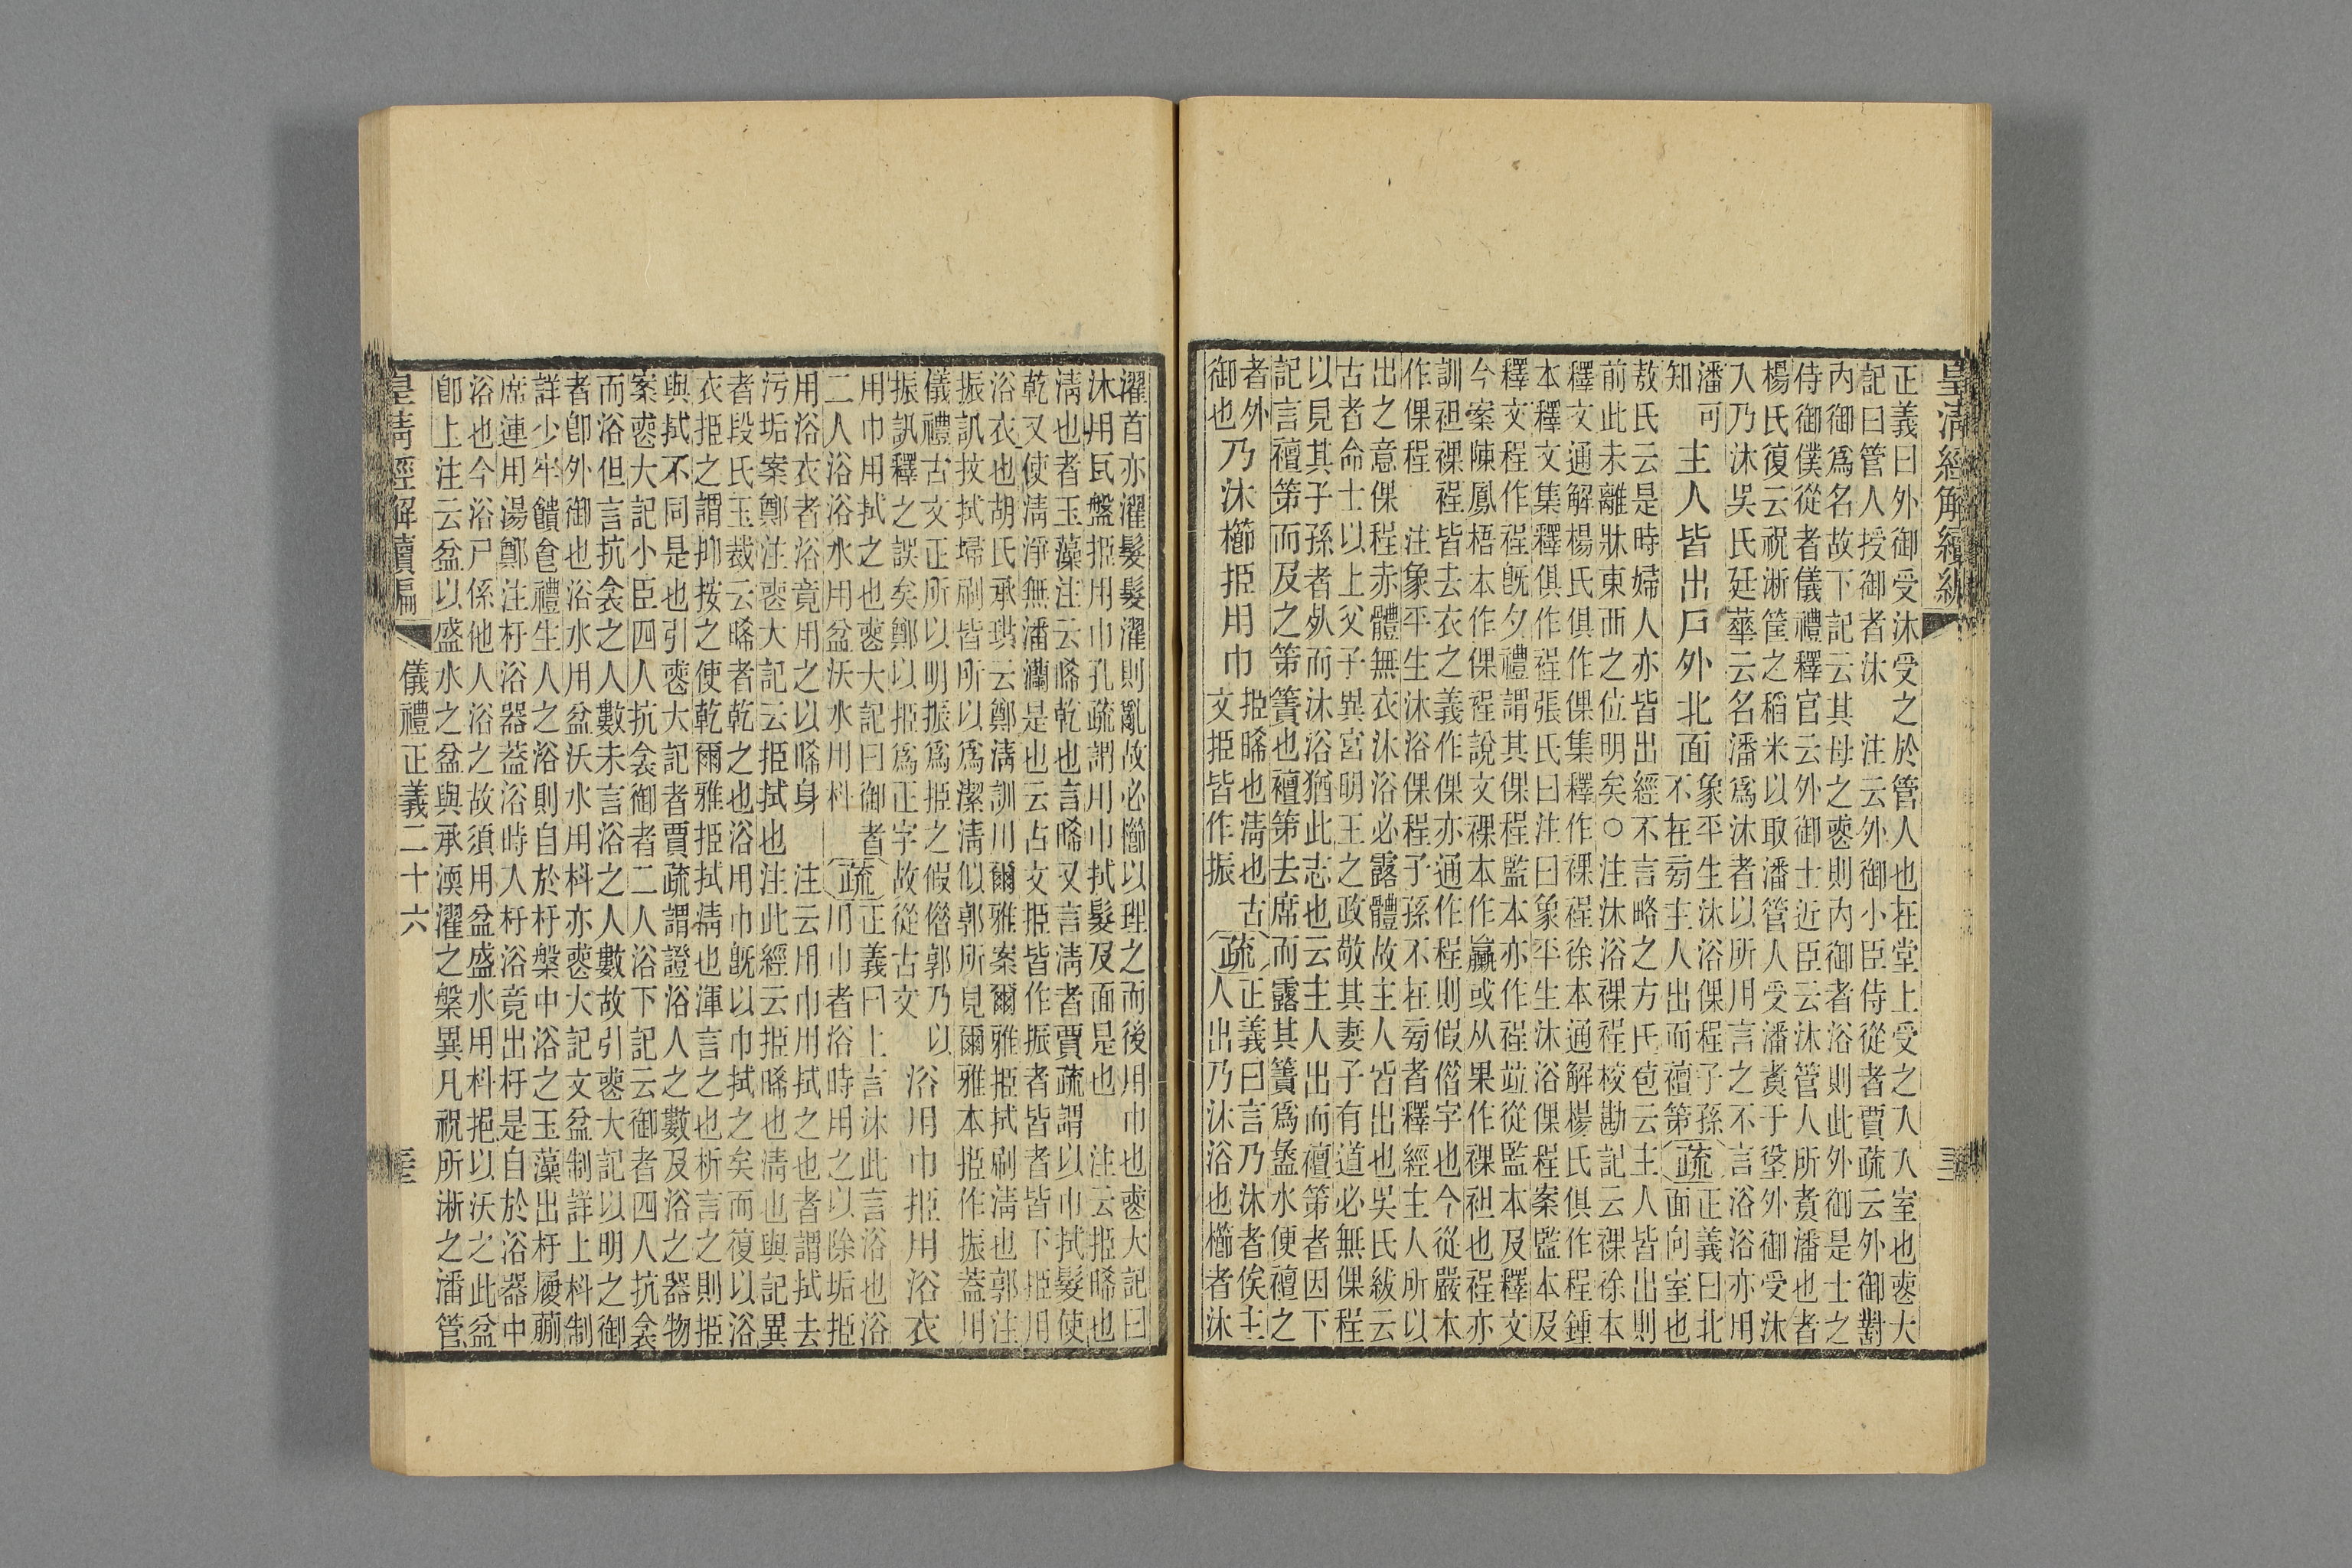 皇清經解續編
正義曰外御受沐受之於管人也在堂上受之入入室也喪大
記曰管人授御者沐　注云外御小臣侍從者賈疏云外御對
內御爲名故下記云其母之喪則內御者浴則此外御是士之
侍御僕從者儀禮釋官云外御士近臣云沐管人所煑潘也者
楊氏復云祝淅筐之稻米以取潘管人受潘煑于垼外御受沐
入乃沐吳氏廷華云名潘爲沐者以所用言之不言浴浴亦用
潘可
知
主人皆出戶外北面
象平生沐浴倮裎子孫
不在㫄主人出而䄠第
疏
正義曰北
面向室也
敖氏云是時婦人亦皆出經不言略之方氏苞云主人皆出則
前此未離牀東西之位明矣○注沐浴裸裎校勘記云裸徐本
釋文通解楊氏俱作倮集釋作裸裎徐本通解楊氏俱作程鍾
本釋文集釋俱作裎張氏曰注曰象平生沐浴倮裎案監本及
釋文裎作裎旣夕禮謂其倮裎監本亦作裎竝從監本及釋文
今案陳鳳梧本作倮裎說文裸本作臝或从果作裸袒也裎亦
訓袒裸裎皆去衣之義作倮亦通作程則假偕字也今從嚴本
作倮程　注象平生沐浴倮程子孫不在㫄者釋經主人所以
出之意倮程赤體無衣沐浴必露體故主人皆出也吳氏紱云
古者命士以上父子異宮明王之政敬其妻子有道必無倮程
以見其子孫者㷊而沐浴猶此志也云主人出而䄠第者因下
記言䄠第而及之第簀也䄠第去席而露其簀爲盝水便䄠之
者外
御也
乃沐櫛挋用巾
挋晞也淸也古
文挋皆作振
疏
正義曰言乃沐者俟主
人出乃沐浴也櫛者沐
濯首亦濯髮髮濯則亂故必櫛以理之而後用巾也喪大記曰
沐用瓦盤挋用巾孔疏謂用巾拭髮及面是也　注云挋晞也
淸也者玉藻注云晞乾也言晞又言淸者賈疏謂以巾拭髮使
乾又使淸淨無潘瀾是也云古文挋皆作振者皆者皆下挋用
浴衣也胡氏承珙云鄭淸訓川爾雅案爾雅挋拭刷淸也郭注
振訊抆拭埽刷皆所以爲潔淸似郭所見爾雅本挋作振蓋用
儀禮古文正所以明振爲挋之假偕郭乃以
振訊釋之誤矣鄭以挋爲正字故從古文
浴用巾挋用浴衣
用巾用拭之也喪大記曰御者
二人浴浴水用盆沃水用枓
疏
正義曰上言沐此言浴也浴
用巾者浴時用之以除垢挋
用浴衣者浴竟用之以晞身　注云用巾用拭之也者謂拭去
污垢案鄭注喪大記云挋拭也注此經云挋晞也淸也與記異
者段氏玉裁云晞者乾之也浴用巾旣以巾拭之矣而復以浴
衣挋之謂抑按之使乾爾雅挋拭淸也渾言之也析言之則挋
與拭不同是也引喪大記者賈疏謂證浴人之數及浴之器物
案喪大記小臣四人抗衾御者二人浴下記云御者四人抗衾
而浴但言抗衾之人數未言浴之人數故引喪大記以明之御
者卽外御也浴水用盆沃水用枓亦喪大記文盆制詳上枓制
詳少牢饋食禮生人之浴則自於杅槃中浴之玉藻出杅履蒯
席連用湯鄭注杅浴器蓋浴時人杅浴竟出杅是自於浴器中
浴也今浴尸係他人浴之故須用盆盛水用枓挹以沃之此盆
卽上注云盆以盛水之盆與承渜濯之槃異凡祝所淅之潘管
皇淸經解續編
儀禮正義二十六